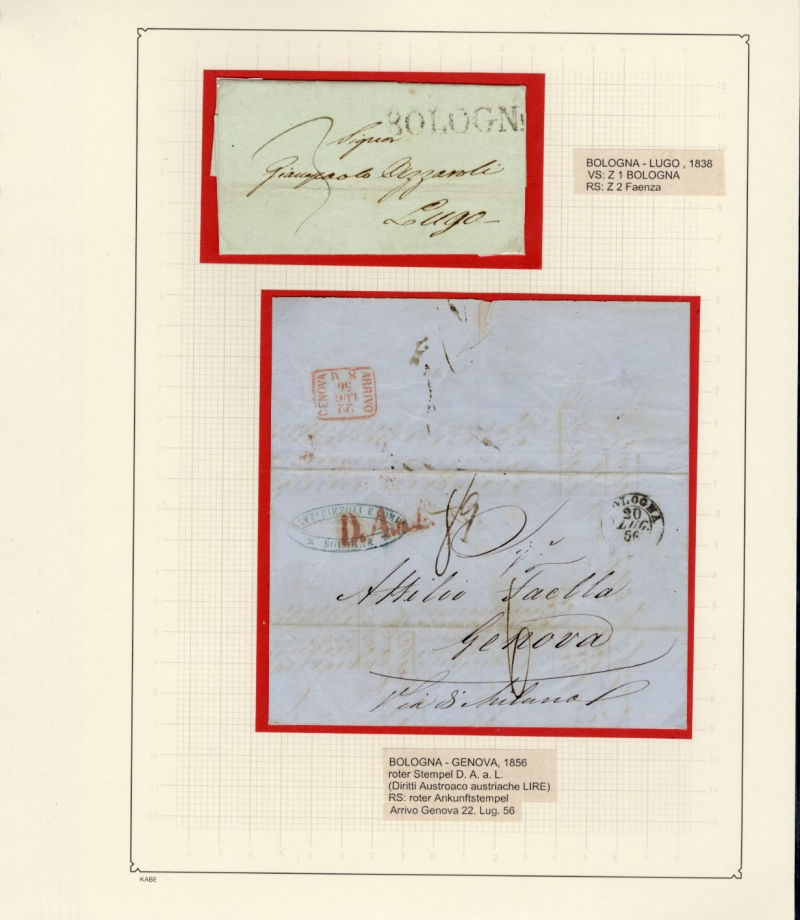 BOLOGN
Signor
Lugo
BOLOGNA - LUGO , 1838
VS: Z 1 BOLOGNA
RS: Z 2 Faenza
ARRIVO
22
LUG
56
GENOVA
BOLOGNA
D. A. a. L.
BOLOGNA
20
LUG.
56
Attilio Faella
Genova
Via di Milano
BOLOGNA - GENOVA, 1856
roter Stempel D. A. a. L.
(Diritti Austroaco austriache LIRE)
RS: roter Ankunftstempel
Arrivo Genova 22. Lug. 56
KABE